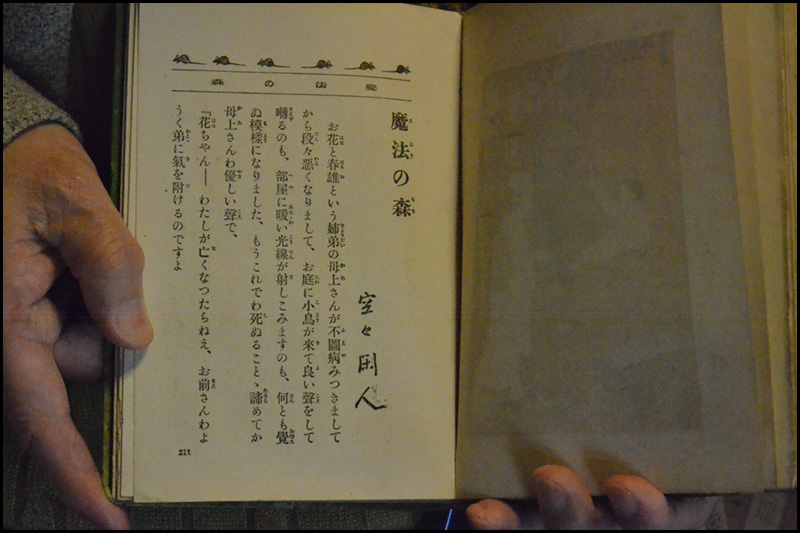 魔法の森
魔法の森
空々閑人
お花と春雄という姉弟の母上さんが不圖病みつきまして
から段々悪くなりまして、お庭に小鳥が來て良い聲をして
囀るのも、部屋に暖い光線が射しこみますのも、何とも覺
ぬ模樣になりました、もうこれでわ死ぬることゝ諦めてか
母上さんわ優しい聲で、
『花ちやん―― わたしが亡くなつたらねえ、お前さんわよ
うく弟に氣を附けるのですよ
211